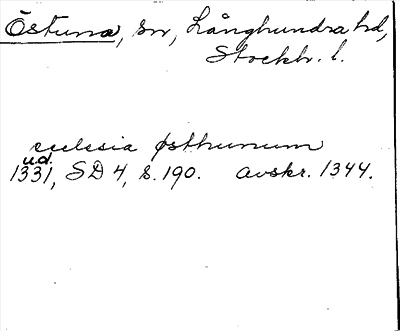 Östuna, sn, Långhundra hd,
Stockh. l.
ecclesia østhunum
u.d.
1331, SD 4, s. 190. Avskr. 1344.